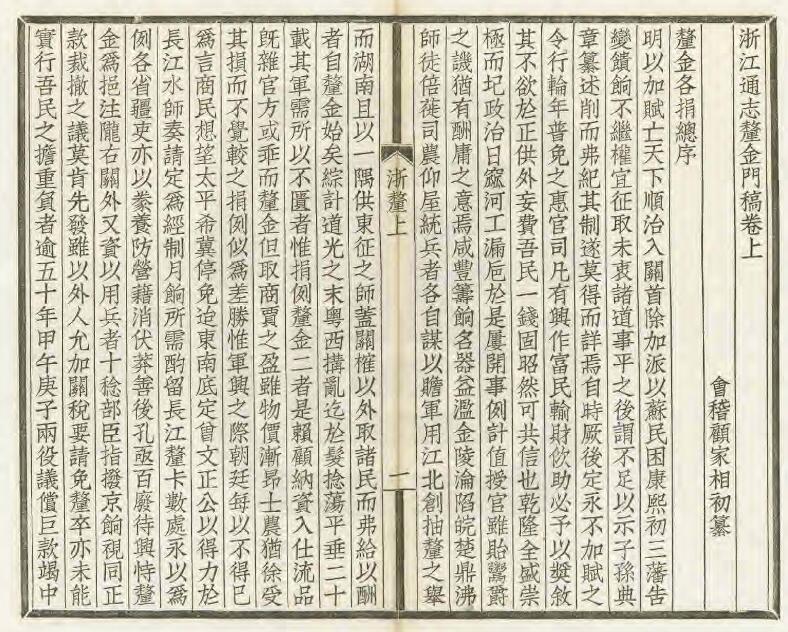 浙江通志釐金門稿卷上
會稽顧家相初纂
釐金各捐總序
明以加賦亡天下順治入關首除加派以蘇民困康熙初三藩告
變饋餉不繼權宜征取未衷諸道事平之後謂不足以示子孫典
章纂述削而弗紀其制遂莫得而詳焉自時厥後定永不加賦之
令行輪年普免之惠官司凡有興作富民輸財佽助必予以獎敘
其不欲於正供外妄費吾民一錢固昭然可共信也乾隆全盛崇
極而圮政治日窳河工漏卮於是屢開事例計值授官雖貽鬻爵
之譏猶有酬庸之意焉咸豐籌餉名器益濫金陵淪陷皖楚鼎沸
師徒倍蓰司農仰屋統兵者各自謀以贍軍用江北創抽釐之舉
浙釐上
一
而湖南且以一隅供東征之師蓋關榷以外取諸民而弗給以酬
者自釐金始矣綜計道光之末粵西搆亂迄於髮捻蕩平垂二十
載其軍需所以不匱者惟捐例釐金二者是賴顧納資入仕流品
既雜官方或乖而釐金但取商賈之盈雖物價漸昂士農猶徐受
其損而不覺較之捐例似為差勝惟軍興之際朝廷每以不得已
為言商民想望太平希冀停免迨東南底定曾文正公以得力於
長江水師奏請定為經制月餉所需酌留長江釐卡數處永以為
例各省疆吏亦以豢養防營藉消伏莽善後孔亟百廢待興恃釐
金為挹注隴右關外又資以用兵者十稔部臣指撥京餉視同正
款裁撤之議莫肯先發雖以外人允加關稅要請免釐卒亦未能
實行吾民之擔重負者逾五十年甲午庚子兩役議償巨款竭中